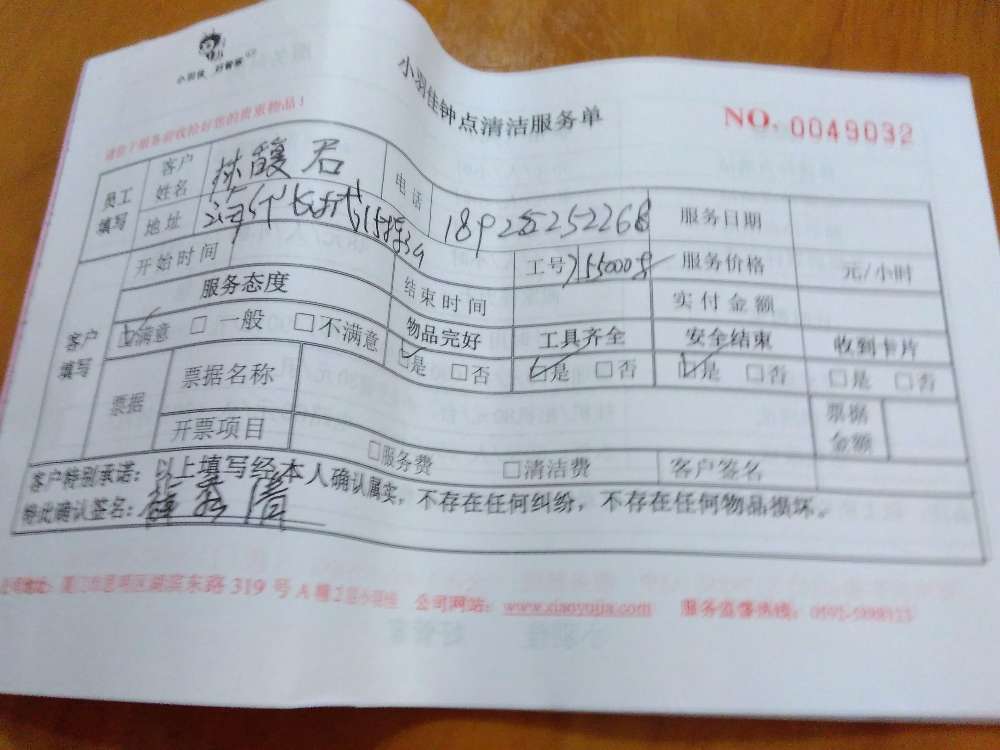 小羽佳 好管家
小羽佳钟点清洁服务单
NO. 0049032
请您于服务前收拾好您的贵重物品！
员工填写 客户姓名 林馥君 电话 18925252268 服务日期
地址
开始时间 结束时间 工号 服务价格 元/小时
客户填写 服务态度 实付金额
满意 □ 一般 □ 不满意 物品完好 工具齐全 安全结束 收到卡片
是 □否 是 □否 是 □否 □是 □否
票据 票据名称 票据金额
开票项目 □服务费 □清洁费 客户签名
客户特别承诺：以上填写经本人确认属实，不存在任何纠纷，不存在任何物品损坏。
特此确认签名：
公司地址：厦门市思明区湖滨东路 319 号 A 幢 2 层小羽佳 公司网站：www.xiaoyujia.com 服务监督热线：